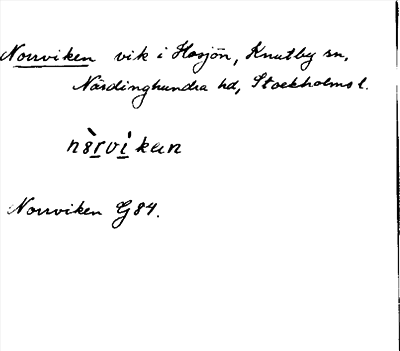 Norrviken vik i Hosjön, Knutby sn,
Närdinghundra hd, Stockholms l.
Norrviken G84.